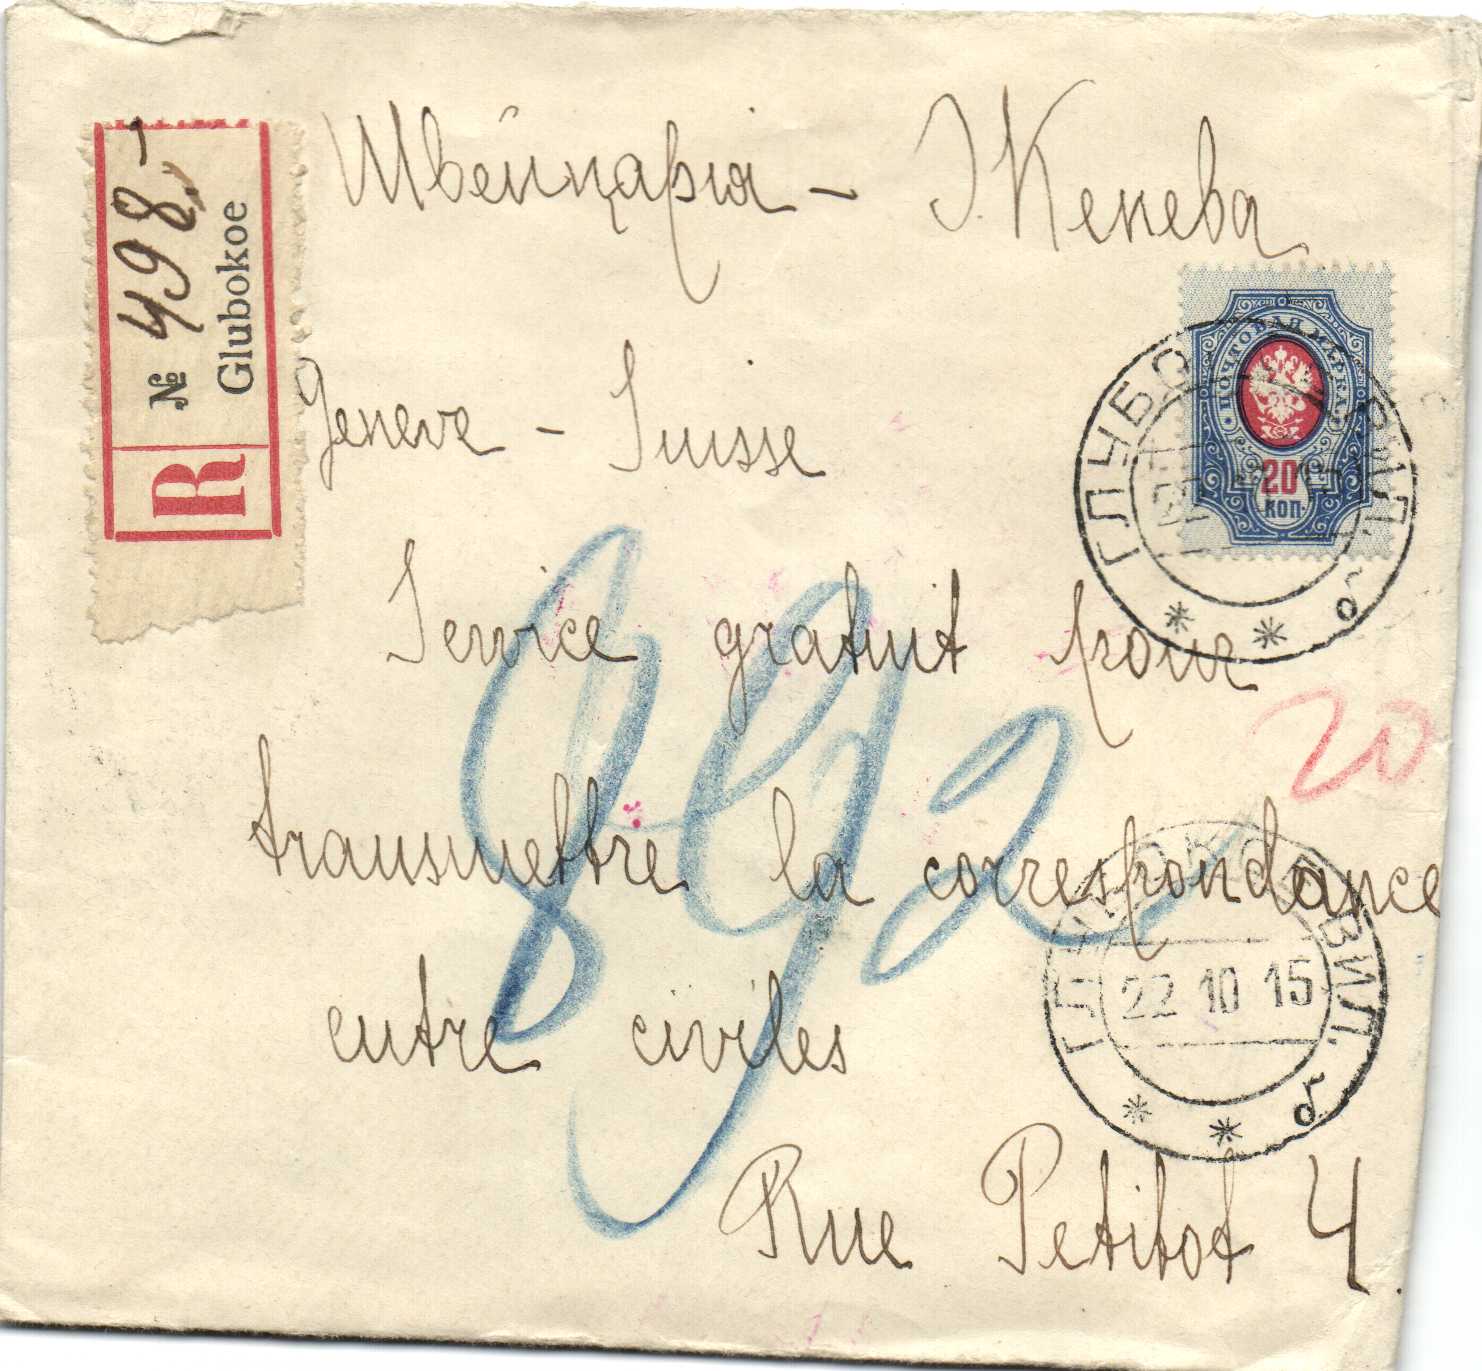 Швейцарія - Женева
R № 498
Glubokoe
ПОЧТОВАЯ МАРКА
20
КОП.
Geneve - Suisse
Service gratuit pour
20
transmettre la correspondance
892
entre civiles
ГЛУБОКОЕ ВИЛ.
22 10 15
б
Rue Petitot 4.